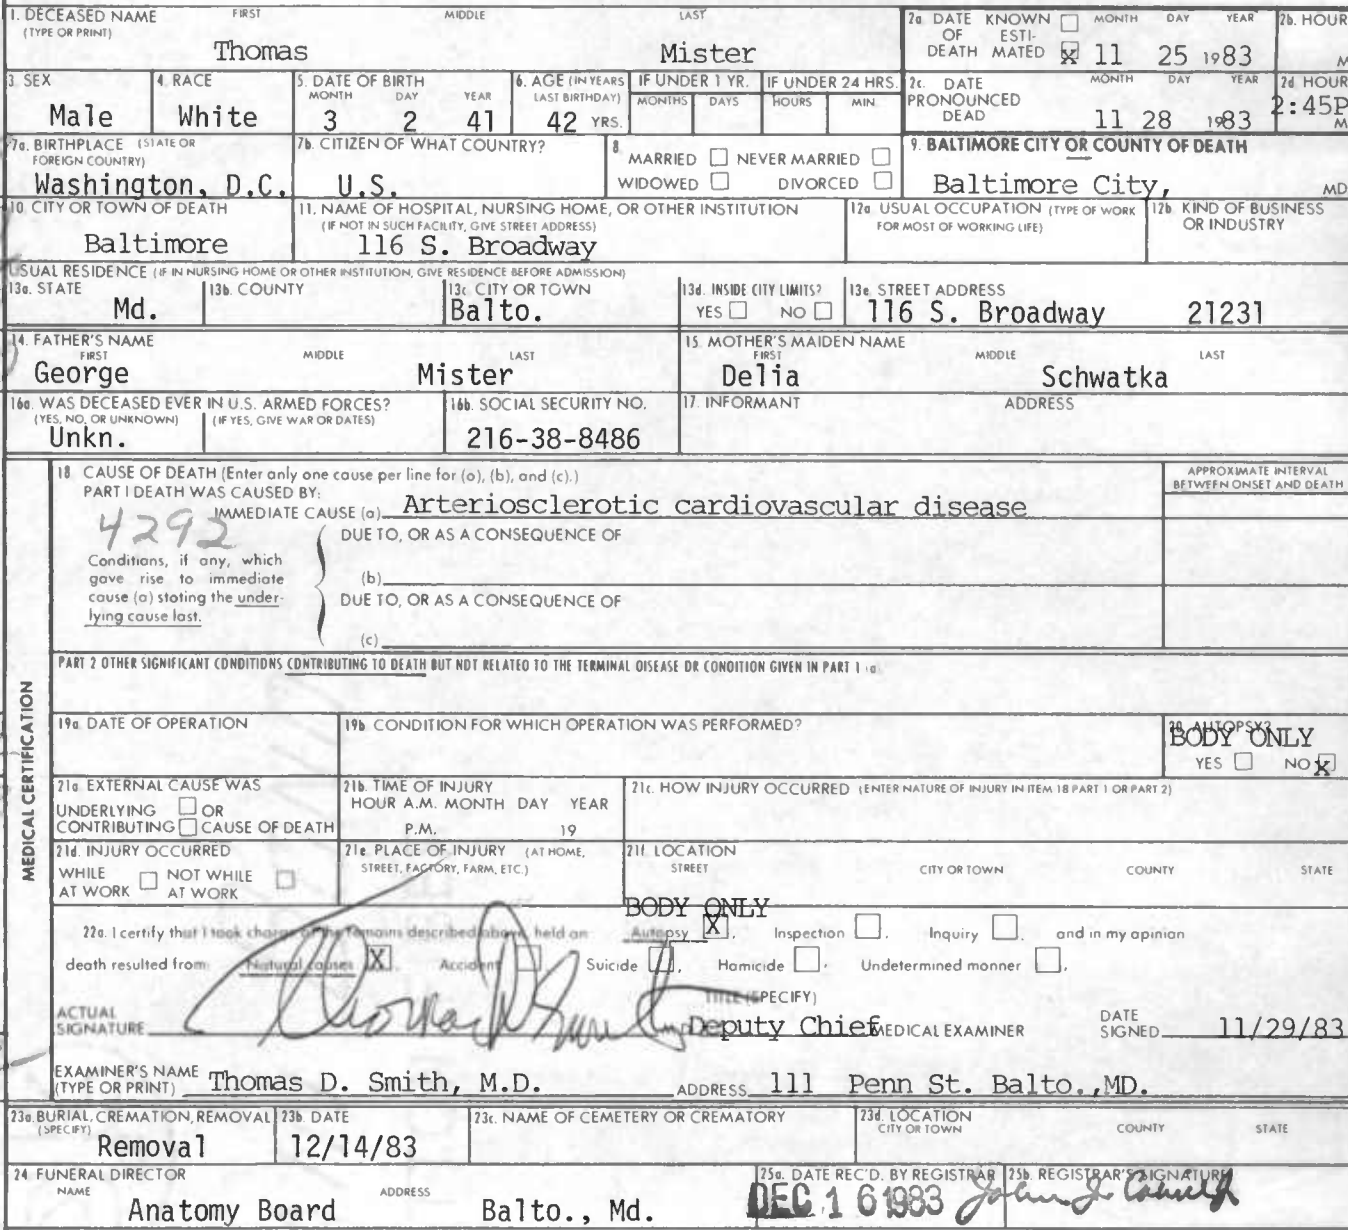 1. DECEASED NAME FIRST MIDDLE LAST
(TYPE OR PRINT)
Thomas Mister
2a. DATE KNOWN ☐ MONTH DAY YEAR
OF ESTI-
DEATH MATED ☒ 11 25 1983
2b. HOUR
M
3. SEX
Male
4. RACE
White
5. DATE OF BIRTH
MONTH DAY YEAR
3 2 41
6. AGE (IN YEARS
LAST BIRTHDAY)
42 YRS.
IF UNDER 1 YR.
MONTHS DAYS
IF UNDER 24 HRS.
HOURS MIN.
2c. DATE MONTH DAY YEAR
PRONOUNCED
DEAD 11 28 1983
2d. HOUR
2:45P
M
7a. BIRTHPLACE (STATE OR
FOREIGN COUNTRY)
Washington, D.C.
7b. CITIZEN OF WHAT COUNTRY?
U.S.
8.
MARRIED ☐ NEVER MARRIED ☐
WIDOWED ☐ DIVORCED ☐
9. BALTIMORE CITY OR COUNTY OF DEATH
Baltimore City, MD
10. CITY OR TOWN OF DEATH
Baltimore
11. NAME OF HOSPITAL, NURSING HOME, OR OTHER INSTITUTION
(IF NOT IN SUCH FACILITY, GIVE STREET ADDRESS)
116 S. Broadway
12a. USUAL OCCUPATION (TYPE OF WORK
FOR MOST OF WORKING LIFE)
12b. KIND OF BUSINESS
OR INDUSTRY
USUAL RESIDENCE (IF IN NURSING HOME OR OTHER INSTITUTION, GIVE RESIDENCE BEFORE ADMISSION)
13a. STATE
Md.
13b. COUNTY
13c. CITY OR TOWN
Balto.
13d. INSIDE CITY LIMITS?
YES ☐ NO ☐
13e. STREET ADDRESS
116 S. Broadway 21231
14. FATHER'S NAME
FIRST MIDDLE LAST
George Mister
15. MOTHER'S MAIDEN NAME
FIRST MIDDLE LAST
Delia Schwatka
16a. WAS DECEASED EVER IN U.S. ARMED FORCES?
(YES, NO, OR UNKNOWN) (IF YES, GIVE WAR OR DATES)
Unkn.
16b. SOCIAL SECURITY NO.
216-38-8486
17. INFORMANT ADDRESS
MEDICAL CERTIFICATION
18. CAUSE OF DEATH (Enter only one cause per line for (a), (b), and (c).)
PART I DEATH WAS CAUSED BY:
IMMEDIATE CAUSE (a) Arteriosclerotic cardiovascular disease
APPROXIMATE INTERVAL
BETWEEN ONSET AND DEATH
4292
DUE TO, OR AS A CONSEQUENCE OF
Conditions, if any, which
gave rise to immediate
cause (a) stating the under-
lying cause last.
(b)
DUE TO, OR AS A CONSEQUENCE OF
(c)
PART 2 OTHER SIGNIFICANT CONDITIONS CONTRIBUTING TO DEATH BUT NOT RELATED TO THE TERMINAL DISEASE OR CONDITION GIVEN IN PART 1 (a)
19a. DATE OF OPERATION
19b. CONDITION FOR WHICH OPERATION WAS PERFORMED?
20. AUTOPSY?
BODY ONLY
YES ☐ NO ☒
21a. EXTERNAL CAUSE WAS
UNDERLYING ☐ OR
CONTRIBUTING ☐ CAUSE OF DEATH
21b. TIME OF INJURY
HOUR A.M. MONTH DAY YEAR
P.M. 19
21c. HOW INJURY OCCURRED (ENTER NATURE OF INJURY IN ITEM 18 PART 1 OR PART 2)
21d. INJURY OCCURRED
WHILE ☐ NOT WHILE ☐
AT WORK AT WORK
21e. PLACE OF INJURY (AT HOME,
STREET, FACTORY, FARM, ETC.)
21f. LOCATION
STREET CITY OR TOWN COUNTY STATE
BODY ONLY
22a. I certify that I took charge of the remains described above, held an: Autopsy ☒, Inspection ☐, Inquiry ☐, and in my opinion
death resulted from: Natural causes ☒, Accident ☐, Suicide ☐, Homicide ☐, Undetermined manner ☐,
TITLE (SPECIFY)
ACTUAL
SIGNATURE Thomas D. Smith Deputy Chief MEDICAL EXAMINER
DATE
SIGNED 11/29/83
EXAMINER'S NAME
(TYPE OR PRINT) Thomas D. Smith, M.D. ADDRESS 111 Penn St. Balto.,MD.
23a. BURIAL, CREMATION, REMOVAL
(SPECIFY)
Removal
23b. DATE
12/14/83
23c. NAME OF CEMETERY OR CREMATORY
23d. LOCATION
CITY OR TOWN COUNTY STATE
24. FUNERAL DIRECTOR
NAME ADDRESS
Anatomy Board Balto., Md.
25a. DATE REC'D. BY REGISTRAR
DEC 16 1983
25b. REGISTRAR'S SIGNATURE
John J.